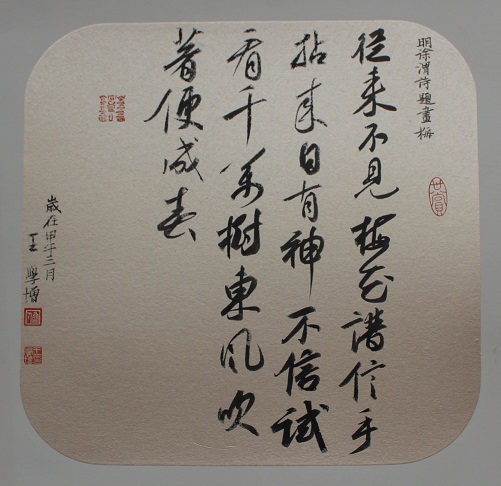 明徐渭诗題畫梅
從来不見梅花譜信手
拈来自有神不信試
看千萬樹東风吹
著便成春
歲在甲午三月
王學增